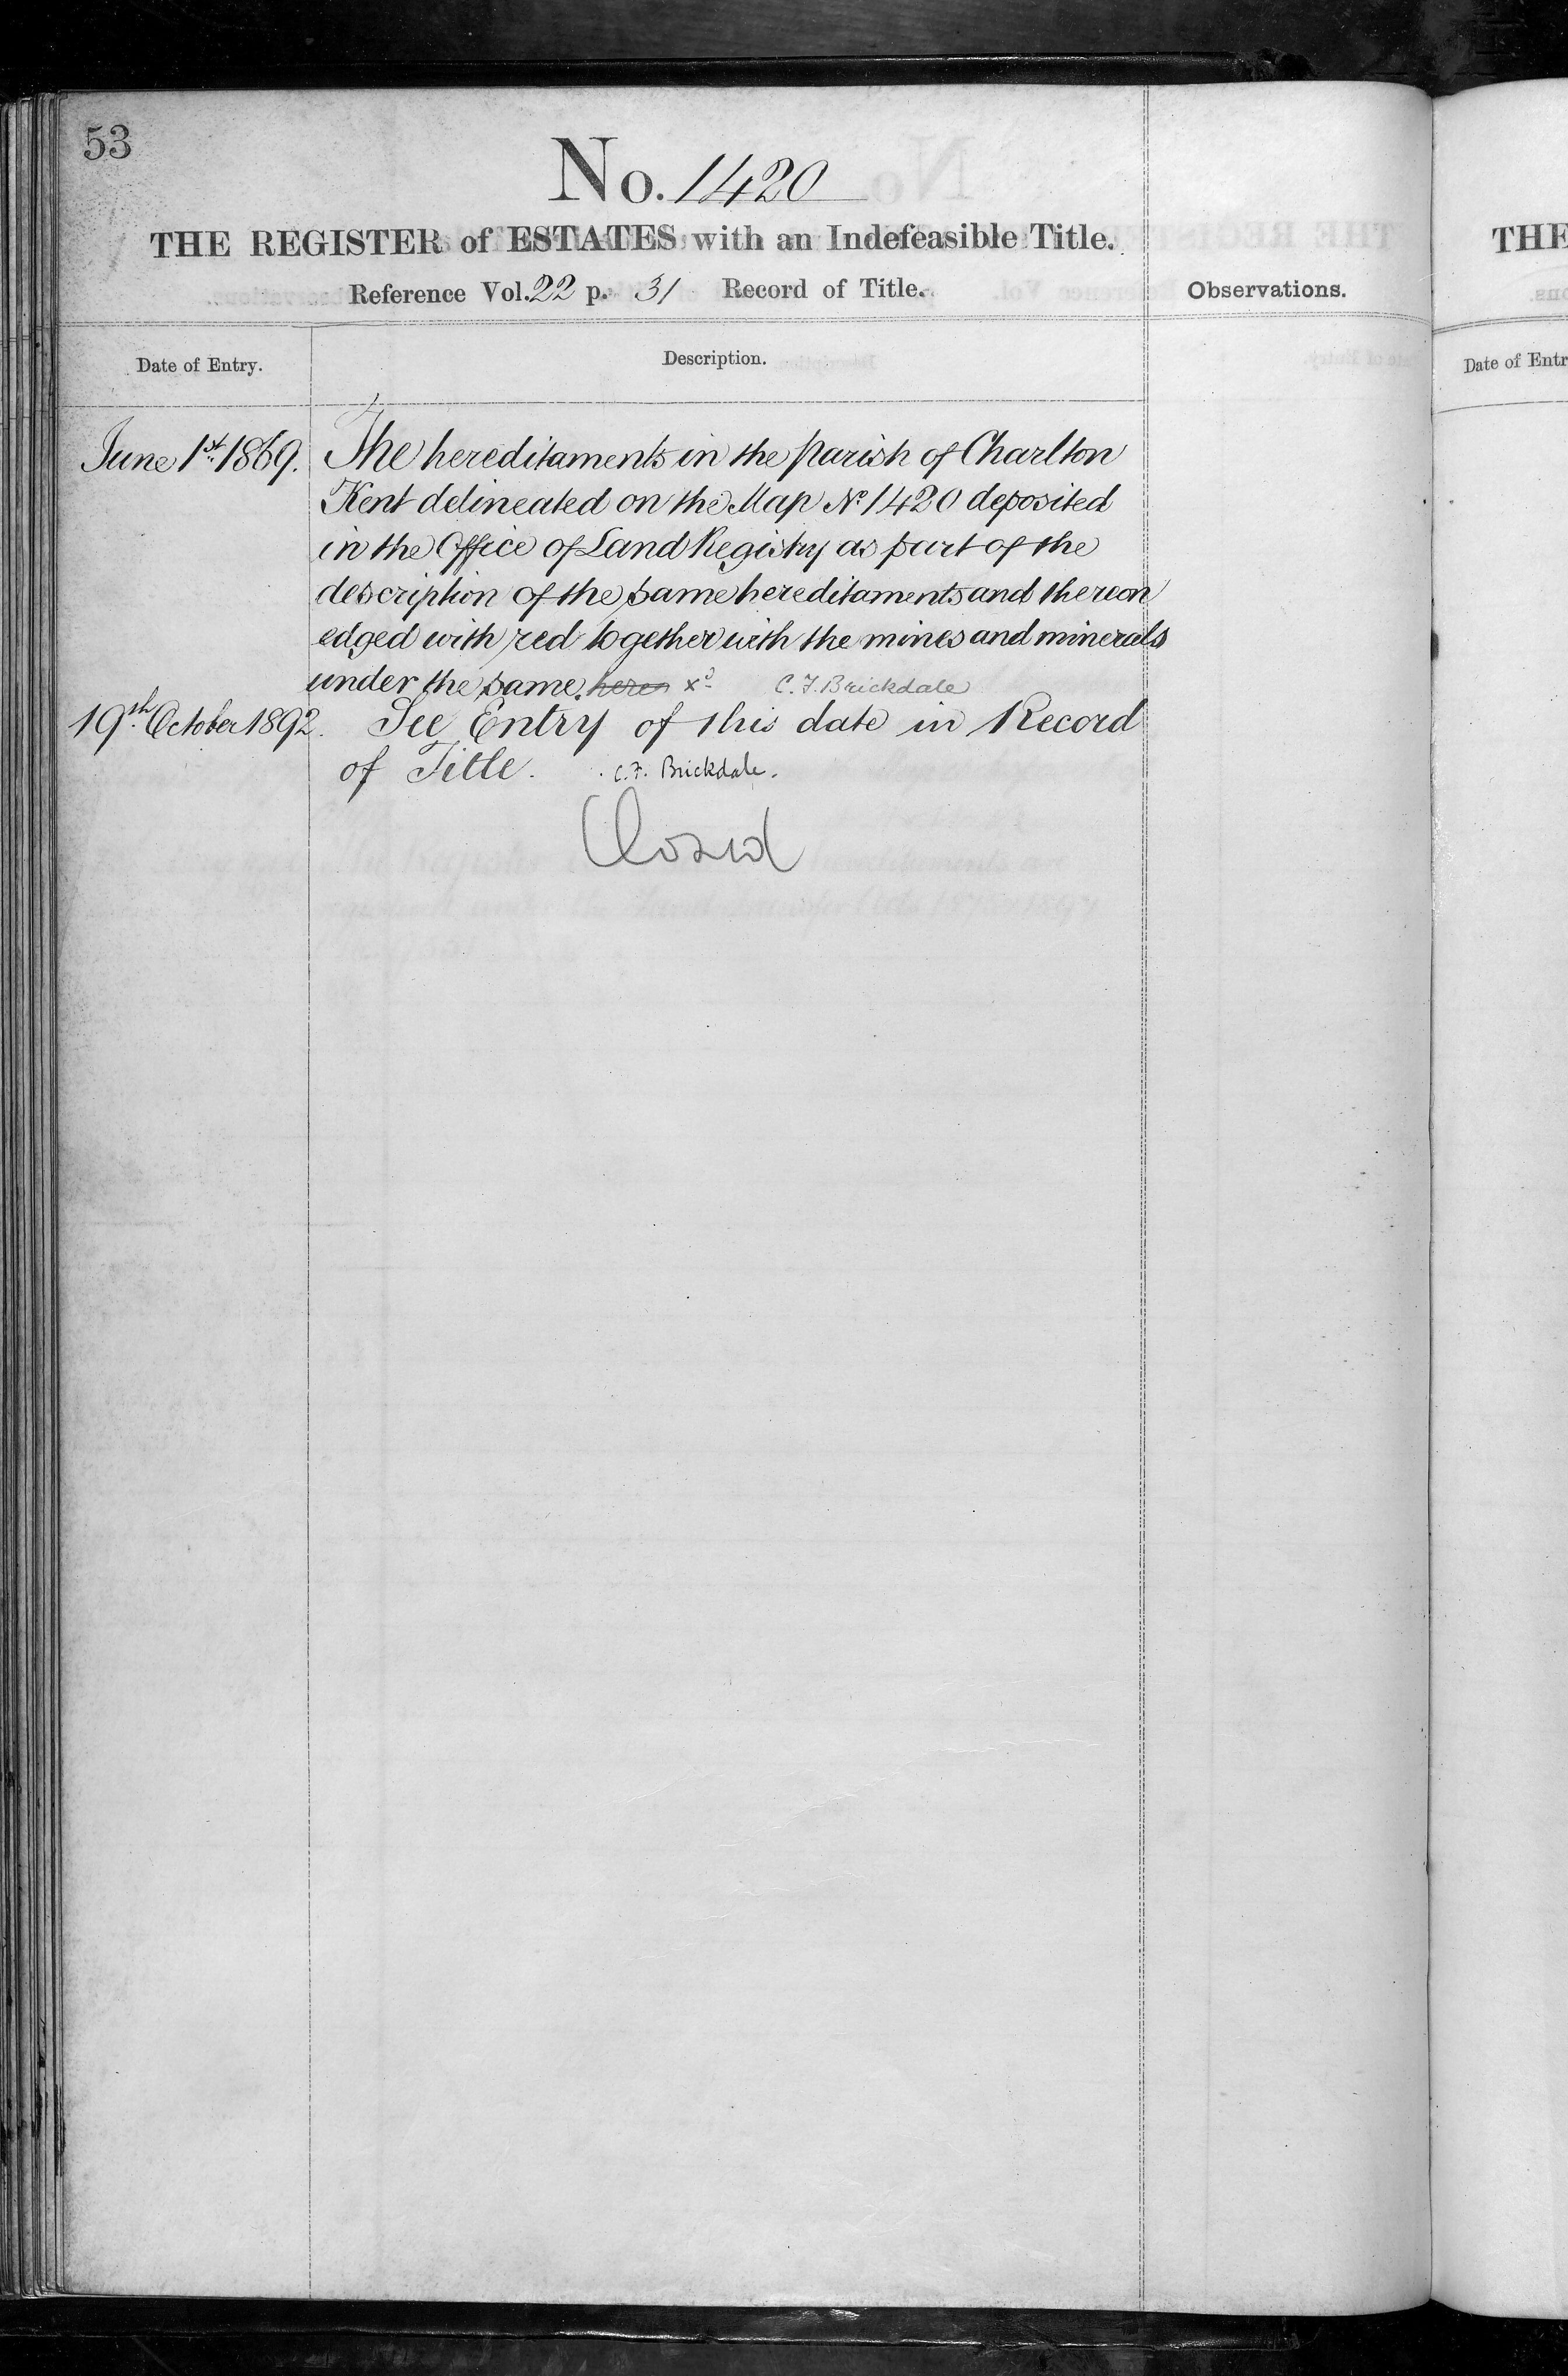 53
No. 1420
THE REGISTER of ESTATES with an Indefeasible Title.
Reference Vol. 22 p. 31 Record of Title.
Observations.
Date of Entry.
Description.
June 1st 1869.
The hereditaments in the parish of Charlton
Kent delineated on the Map No 1420 deposited
in the Office of Land Registry as part of the
description of the same hereditaments and thereon
edged with red together with the mines and minerals
under the same. C. F. Brickdale
19th October 1892.
See Entry of this date in Record
of Title. C. F. Brickdale.
Closed
THE
Date of Entr